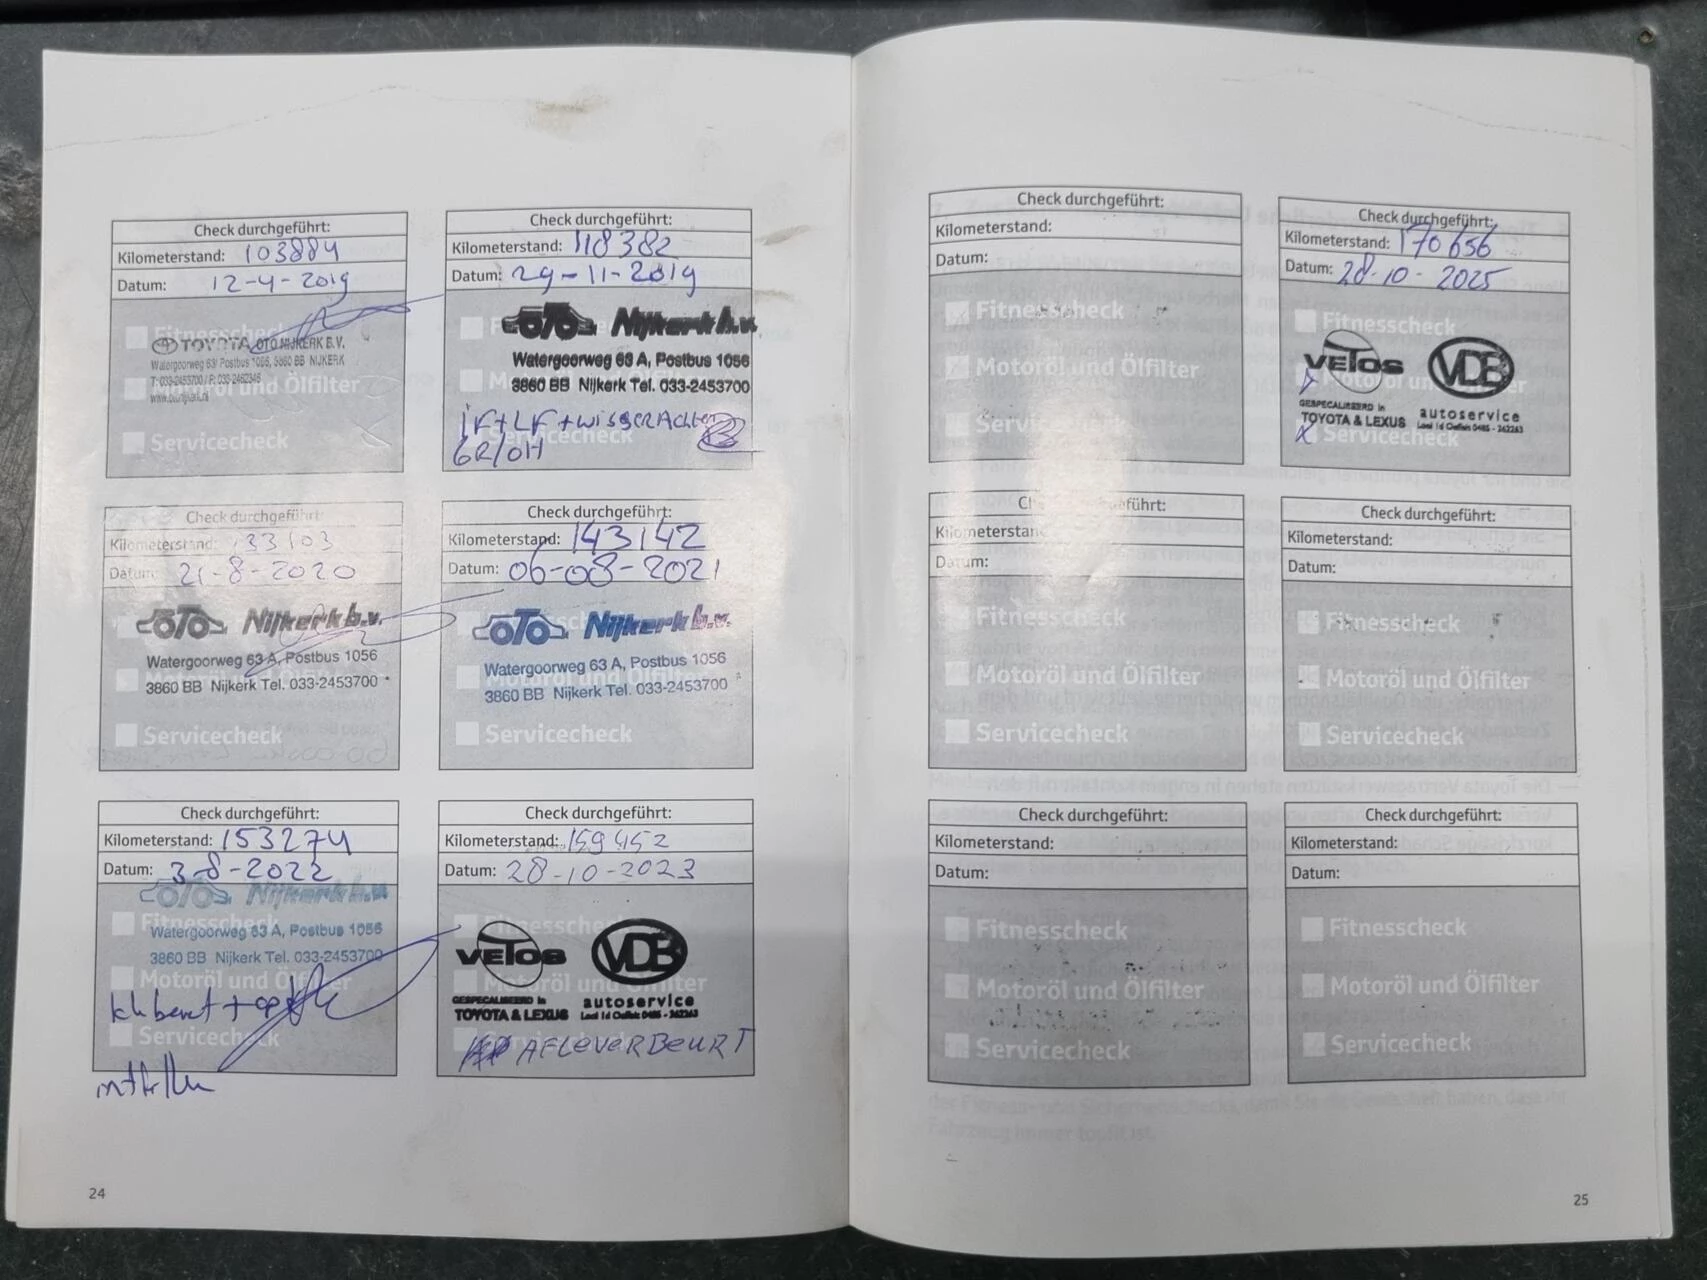 Check durchgeführt:
Kilometerstand: 103884
Datum: 12-4-2019
Fitnesscheck
TOYOTA OTO NIJKERK B.V.
Watergoorweg 63/ Postbus 1056, 3860 BB NIJKERK
T: 033-2453700 / F: 033-2462346
Motoröl und Ölfilter
Servicecheck
Check durchgeführt:
Kilometerstand: 118382
Datum: 29-11-2019
OTO Nijkerk b.v.
Watergoorweg 63 A, Postbus 1056
3860 BB Nijkerk Tel. 033-2453700
iF+LF+wisserAchter
GR/OH
Servicecheck
Check durchgeführt:
Kilometerstand: 133103
Datum: 21-8-2020
OTO Nijkerk b.v.
Watergoorweg 63 A, Postbus 1056
3860 BB Nijkerk Tel. 033-2453700
Servicecheck
Check durchgeführt:
Kilometerstand: 143142
Datum: 06-08-2021
OTO Nijkerk b.v.
Watergoorweg 63 A, Postbus 1056
3860 BB Nijkerk Tel. 033-2453700
Servicecheck
Check durchgeführt:
Kilometerstand: 153274
Datum: 3-8-2022
OTO Nijkerk b.v.
Fitnesscheck
Watergoorweg 63 A, Postbus 1056
3860 BB Nijkerk Tel. 033-2453700
Motoröl und Ölfilter
Servicecheck
Check durchgeführt:
Kilometerstand: 159452
Datum: 28-10-2023
Fitnesscheck
VETOS VDB
Motoröl und Ölfilter
GESPECIALISEERD in autoservice
TOYOTA & LEXUS
AFLEVERBEURT
24
Check durchgeführt:
Kilometerstand:
Datum:
Fitnesscheck
Motoröl und Ölfilter
Servicecheck
Check durchgeführt:
Kilometerstand: 170656
Datum: 28-10-2025
Fitnesscheck
VETOS VDB
Motoröl und Ölfilter
GESPECIALISEERD in autoservice
TOYOTA & LEXUS
Servicecheck
Check durchgeführt:
Kilometerstand:
Datum:
Fitnesscheck
Motoröl und Ölfilter
Servicecheck
Check durchgeführt:
Kilometerstand:
Datum:
Fitnesscheck
Motoröl und Ölfilter
Servicecheck
Check durchgeführt:
Kilometerstand:
Datum:
Fitnesscheck
Motoröl und Ölfilter
Servicecheck
Check durchgeführt:
Kilometerstand:
Datum:
Fitnesscheck
Motoröl und Ölfilter
Servicecheck
25